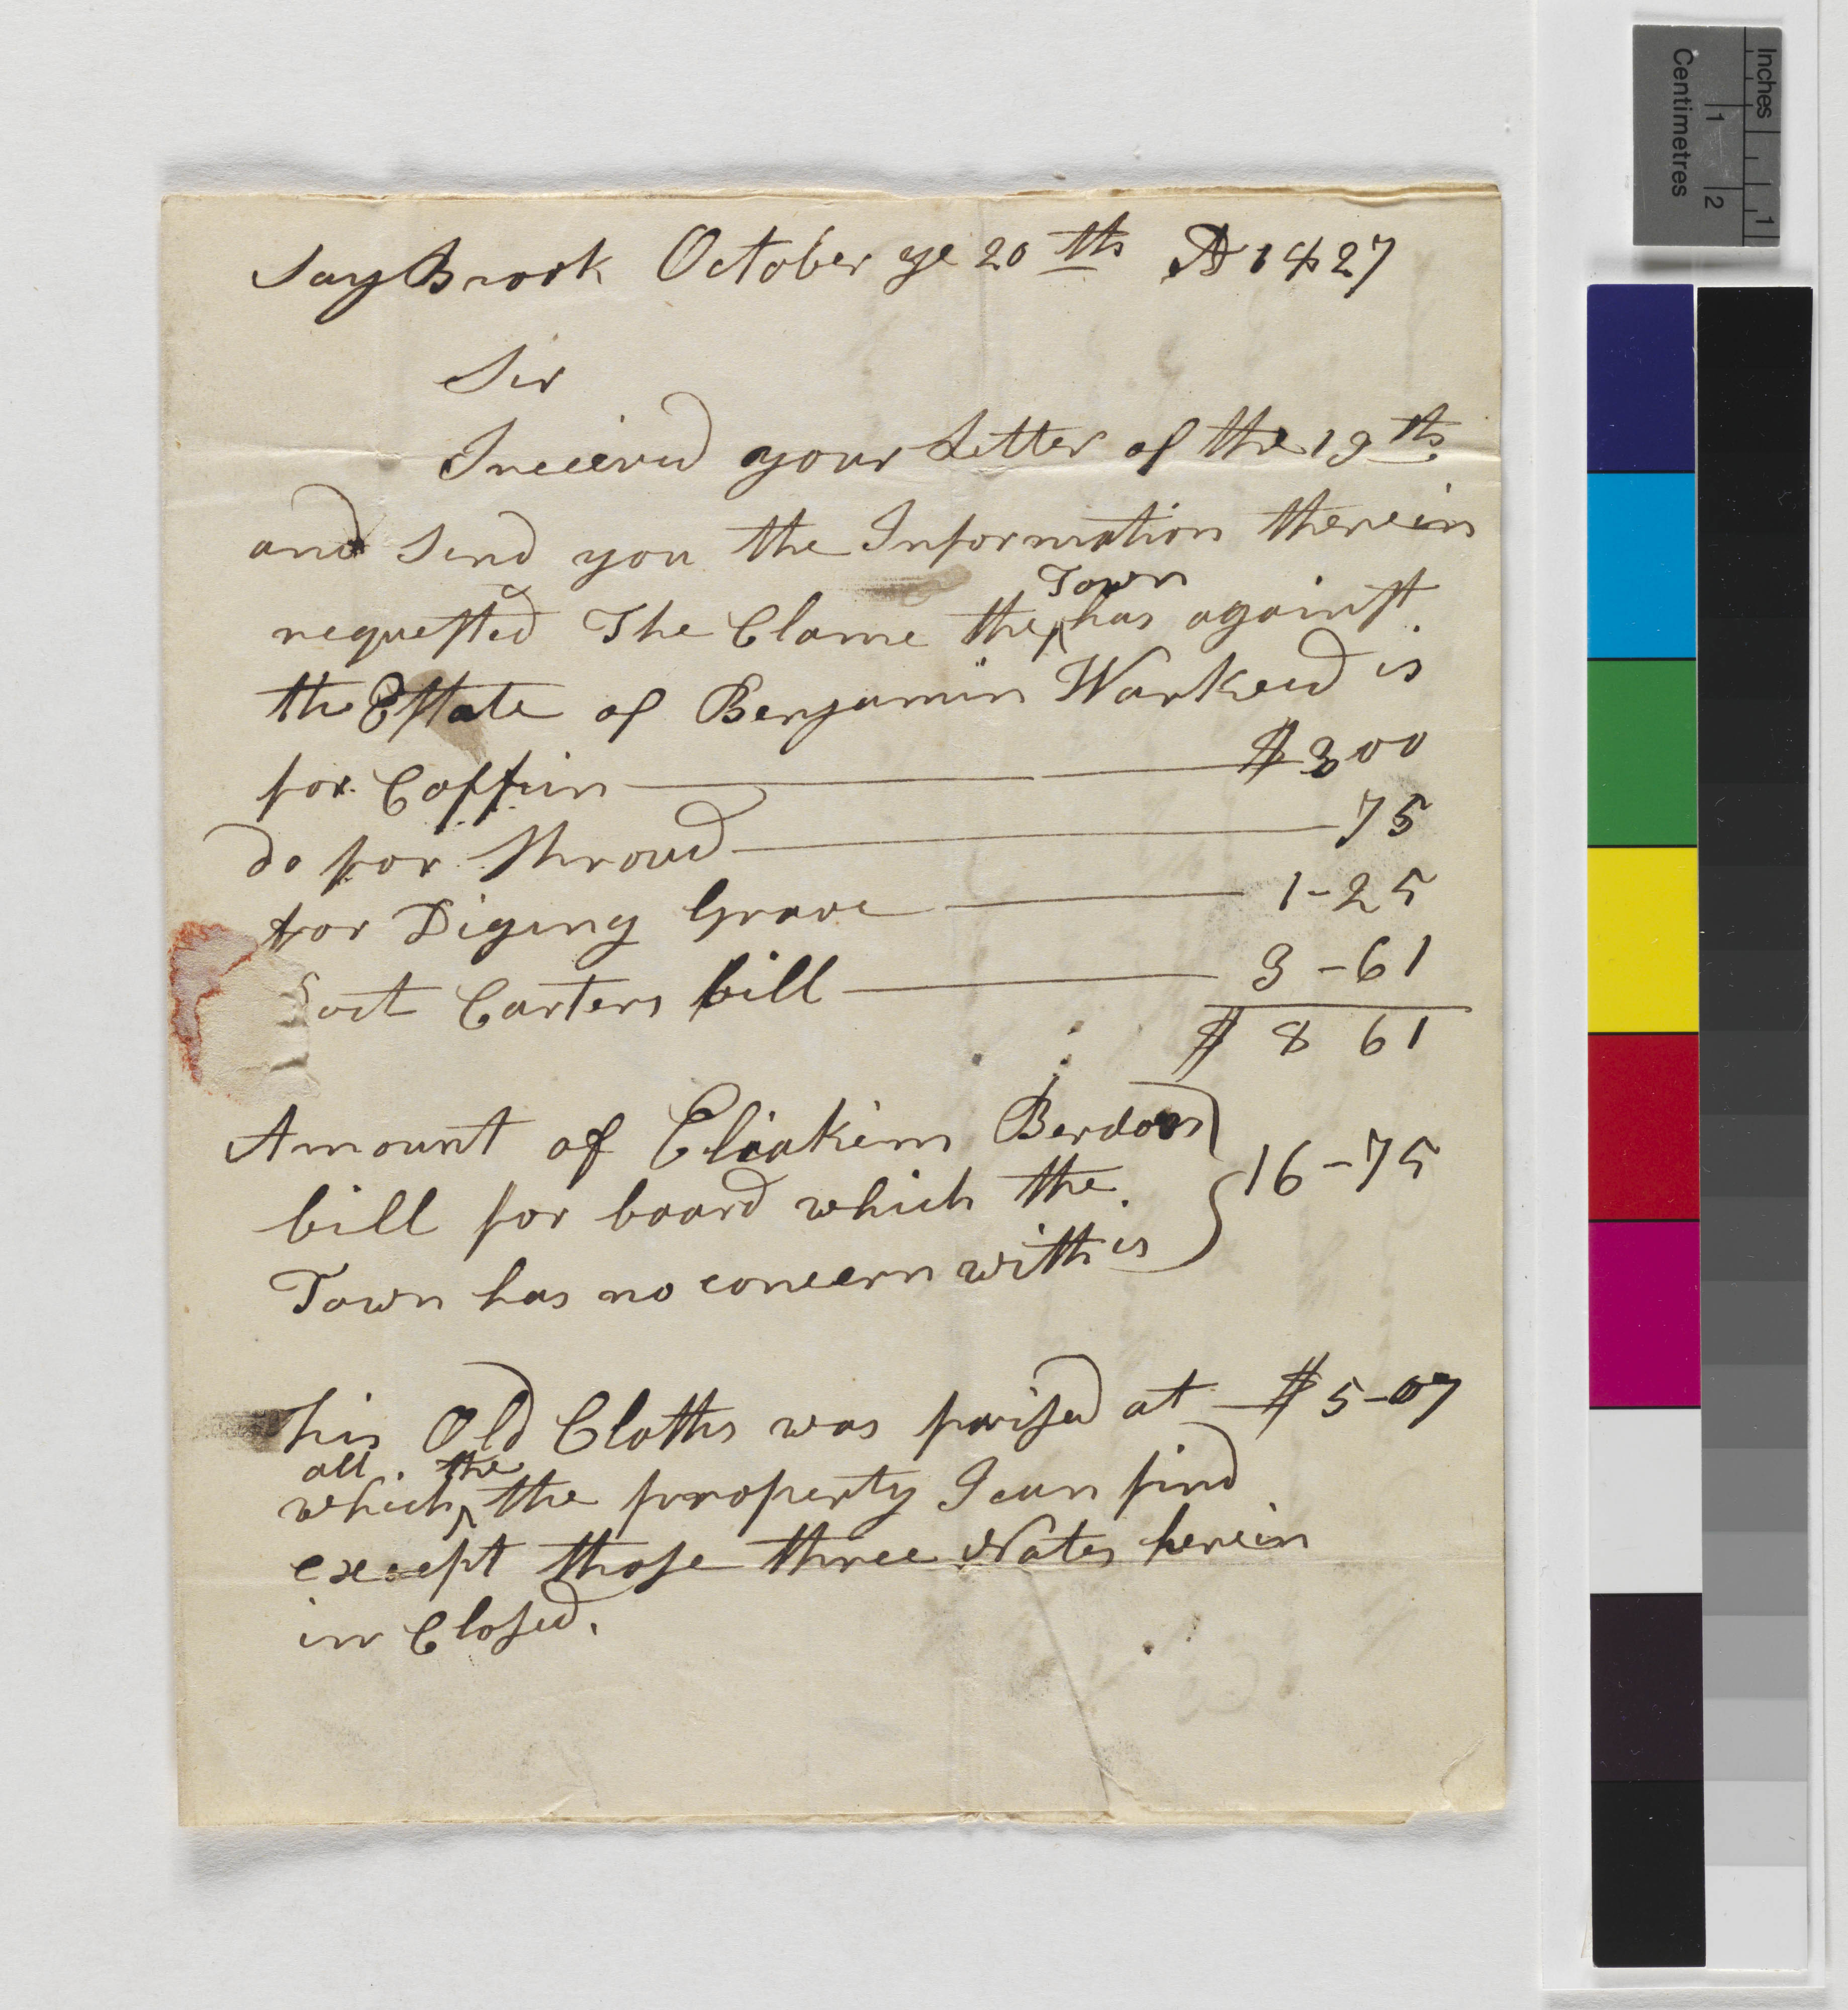 SayBrook October ye 20th AD 1827
Sir
I received your Letter of the 19th
and Send you the Information therein
requested The Clame the Town has against
the Estate of Benjamin Warkeed is
for Coffin $3 00
do for Shroud 75
for Diging Grave 1-25
Doct Carters bill 3-61
$ 8 61
Amount of Eliakim
bill for board which the 16-75
Town has no concern with is
his Old Cloths was prised at $5-07
all the
which the property I can find
except those three Notes herein
in Closed.
Inches 1
Centimetres 1 2